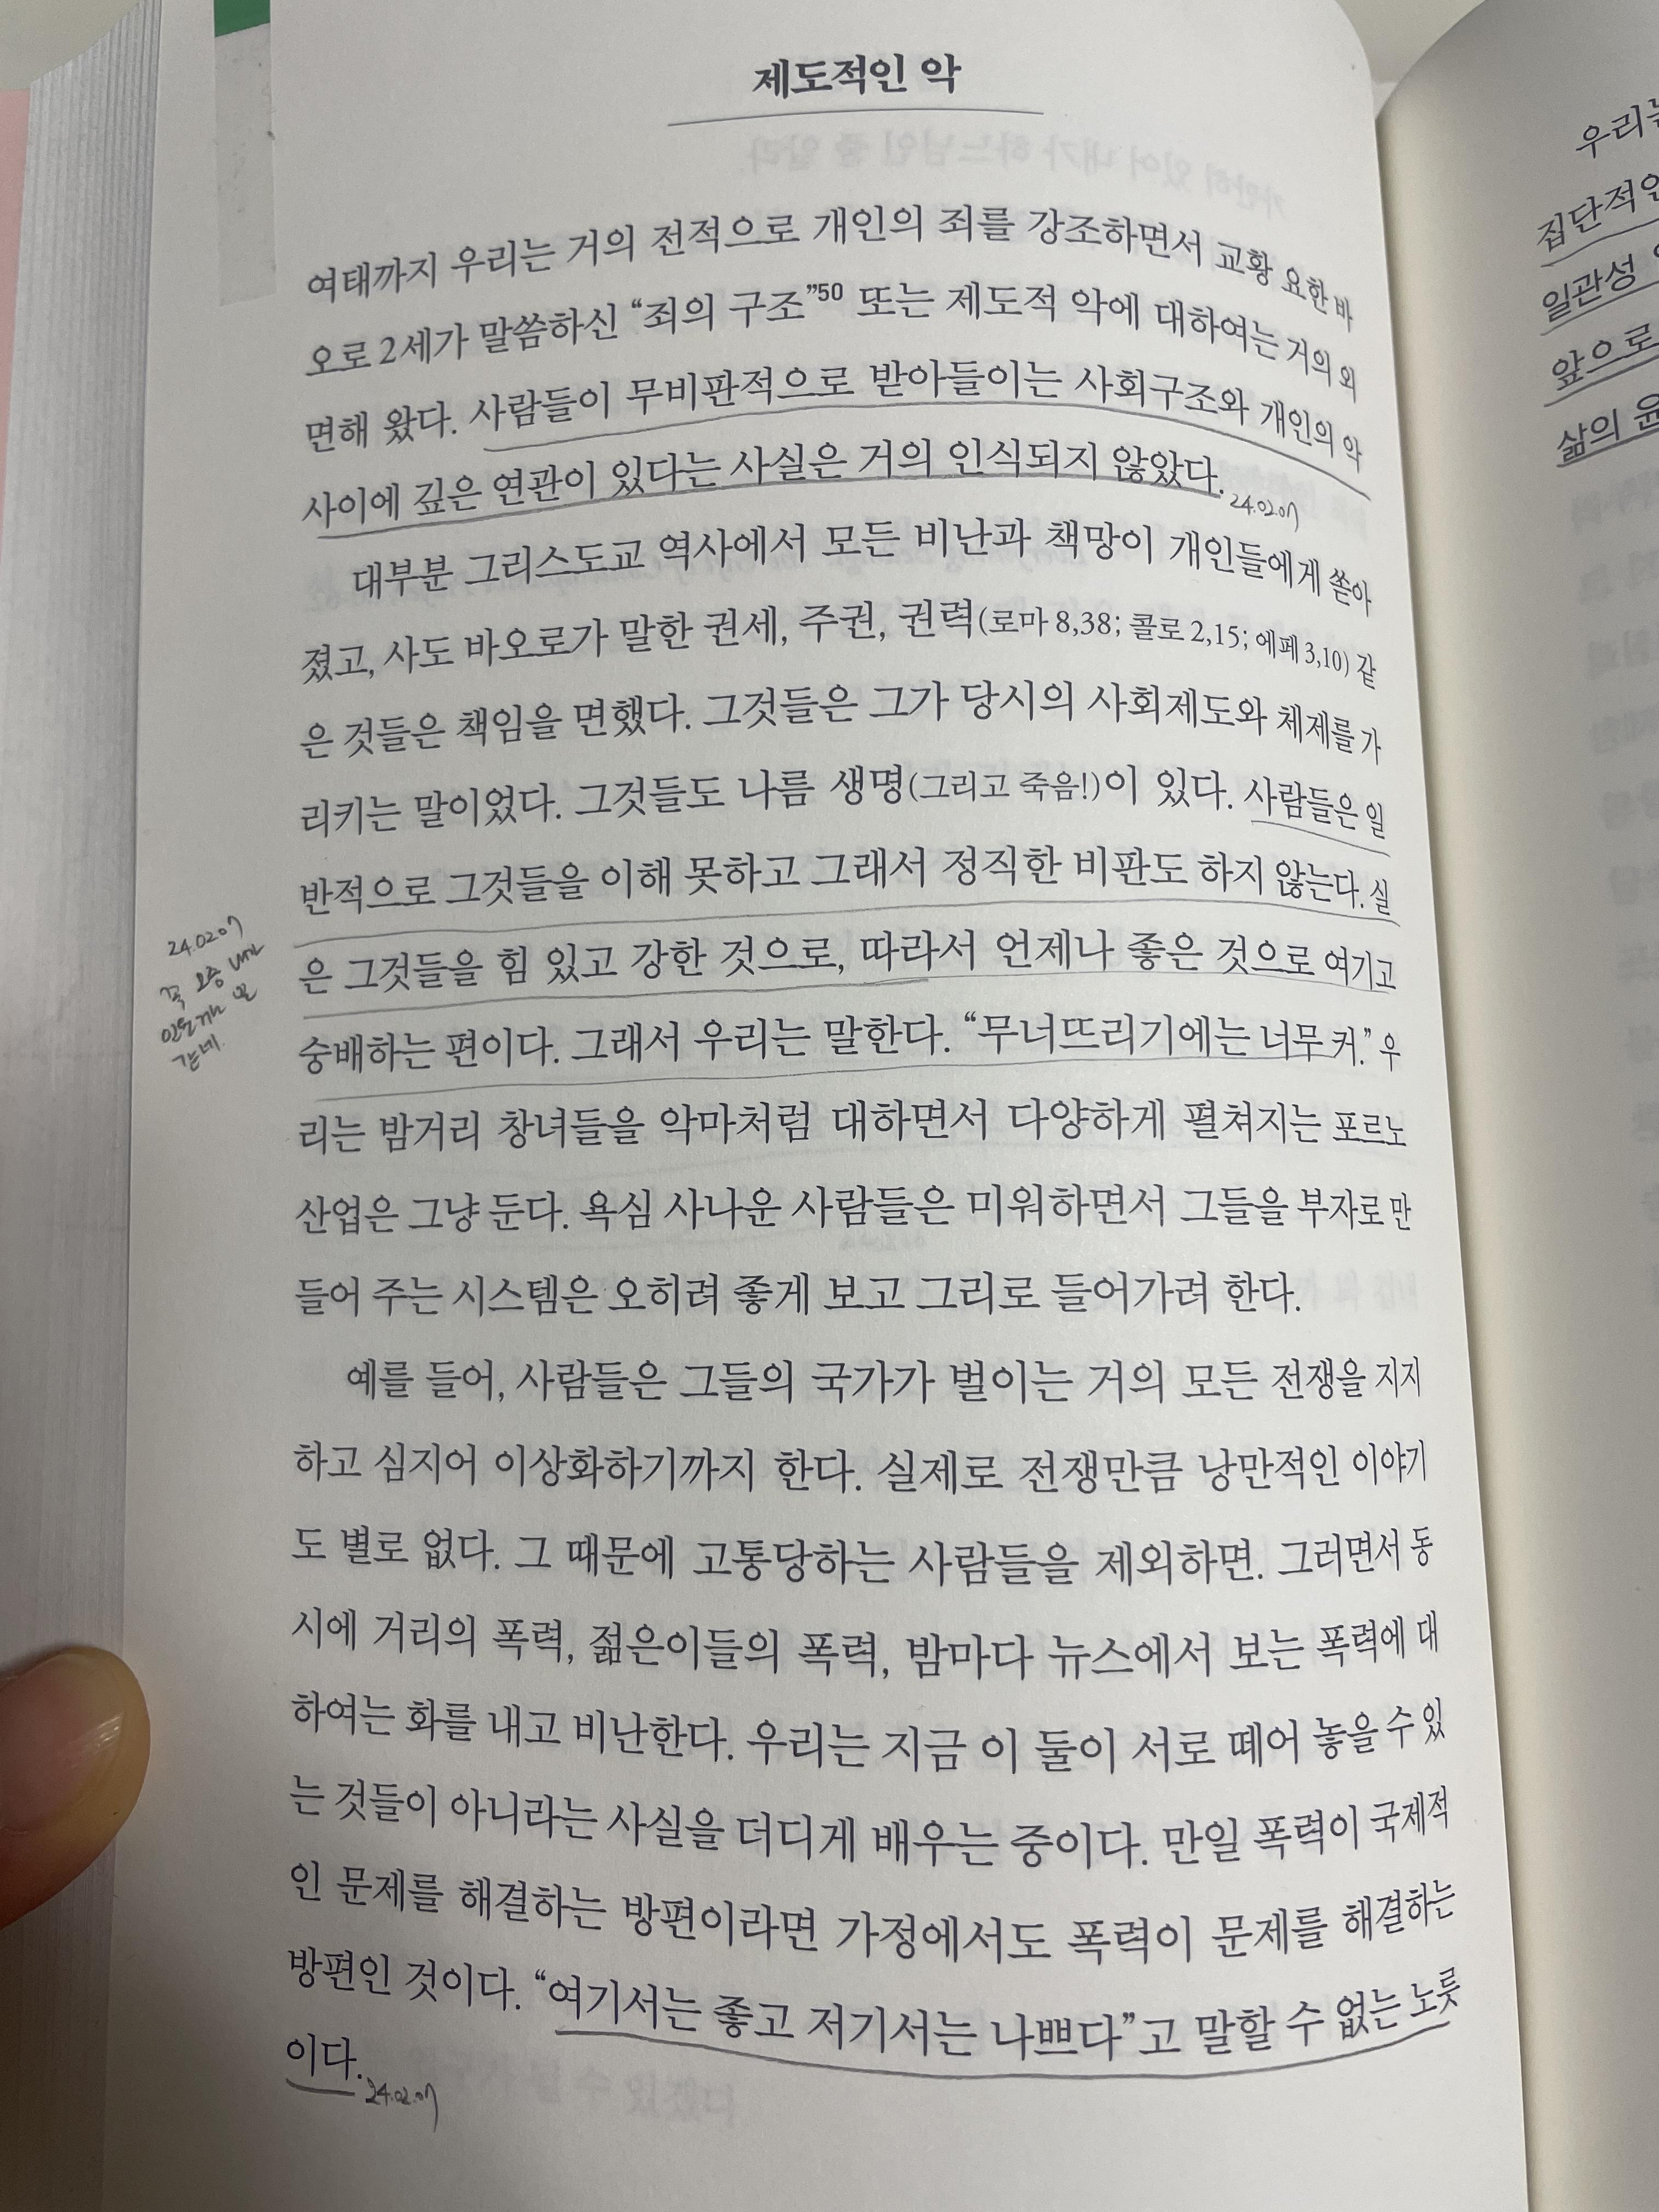 제도적인 악
여태까지 우리는 거의 전적으로 개인의 죄를 강조하면서 교황 요한 바
오로 2세가 말씀하신 “죄의 구조”50 또는 제도적 악에 대하여는 거의 외
면해 왔다. 사람들이 무비판적으로 받아들이는 사회구조와 개인의 악
사이에 깊은 연관이 있다는 사실은 거의 인식되지 않았다.
24.02.07
대부분 그리스도교 역사에서 모든 비난과 책망이 개인들에게 쏟아
졌고, 사도 바오로가 말한 권세, 주권, 권력(로마 8,38; 콜로 2,15; 에페 3,10) 같
은 것들은 책임을 면했다. 그것들은 그가 당시의 사회제도와 체제를 가
리키는 말이었다. 그것들도 나름 생명(그리고 죽음!)이 있다. 사람들은 일
반적으로 그것들을 이해 못하고 그래서 정직한 비판도 하지 않는다. 실
은 그것들을 힘 있고 강한 것으로, 따라서 언제나 좋은 것으로 여기고
숭배하는 편이다. 그래서 우리는 말한다. “무너뜨리기에는 너무 커.” 우
리는 밤거리 창녀들을 악마처럼 대하면서 다양하게 펼쳐지는 포르노
산업은 그냥 둔다. 욕심 사나운 사람들은 미워하면서 그들을 부자로 만
들어 주는 시스템은 오히려 좋게 보고 그리로 들어가려 한다.
예를 들어, 사람들은 그들의 국가가 벌이는 거의 모든 전쟁을 지지
하고 심지어 이상화하기까지 한다. 실제로 전쟁만큼 낭만적인 이야기
도 별로 없다. 그 때문에 고통당하는 사람들을 제외하면. 그러면서 동
시에 거리의 폭력, 젊은이들의 폭력, 밤마다 뉴스에서 보는 폭력에 대
하여는 화를 내고 비난한다. 우리는 지금 이 둘이 서로 떼어 놓을 수 있
는 것들이 아니라는 사실을 더디게 배우는 중이다. 만일 폭력이 국제적
인 문제를 해결하는 방편이라면 가정에서도 폭력이 문제를 해결하는
방편인 것이다. “여기서는 좋고 저기서는 나쁘다”고 말할 수 없는 노릇
이다.
24.02.07
24.02.07
꼭 요즘
우리는
집단적인
일관성
앞으로
삶의